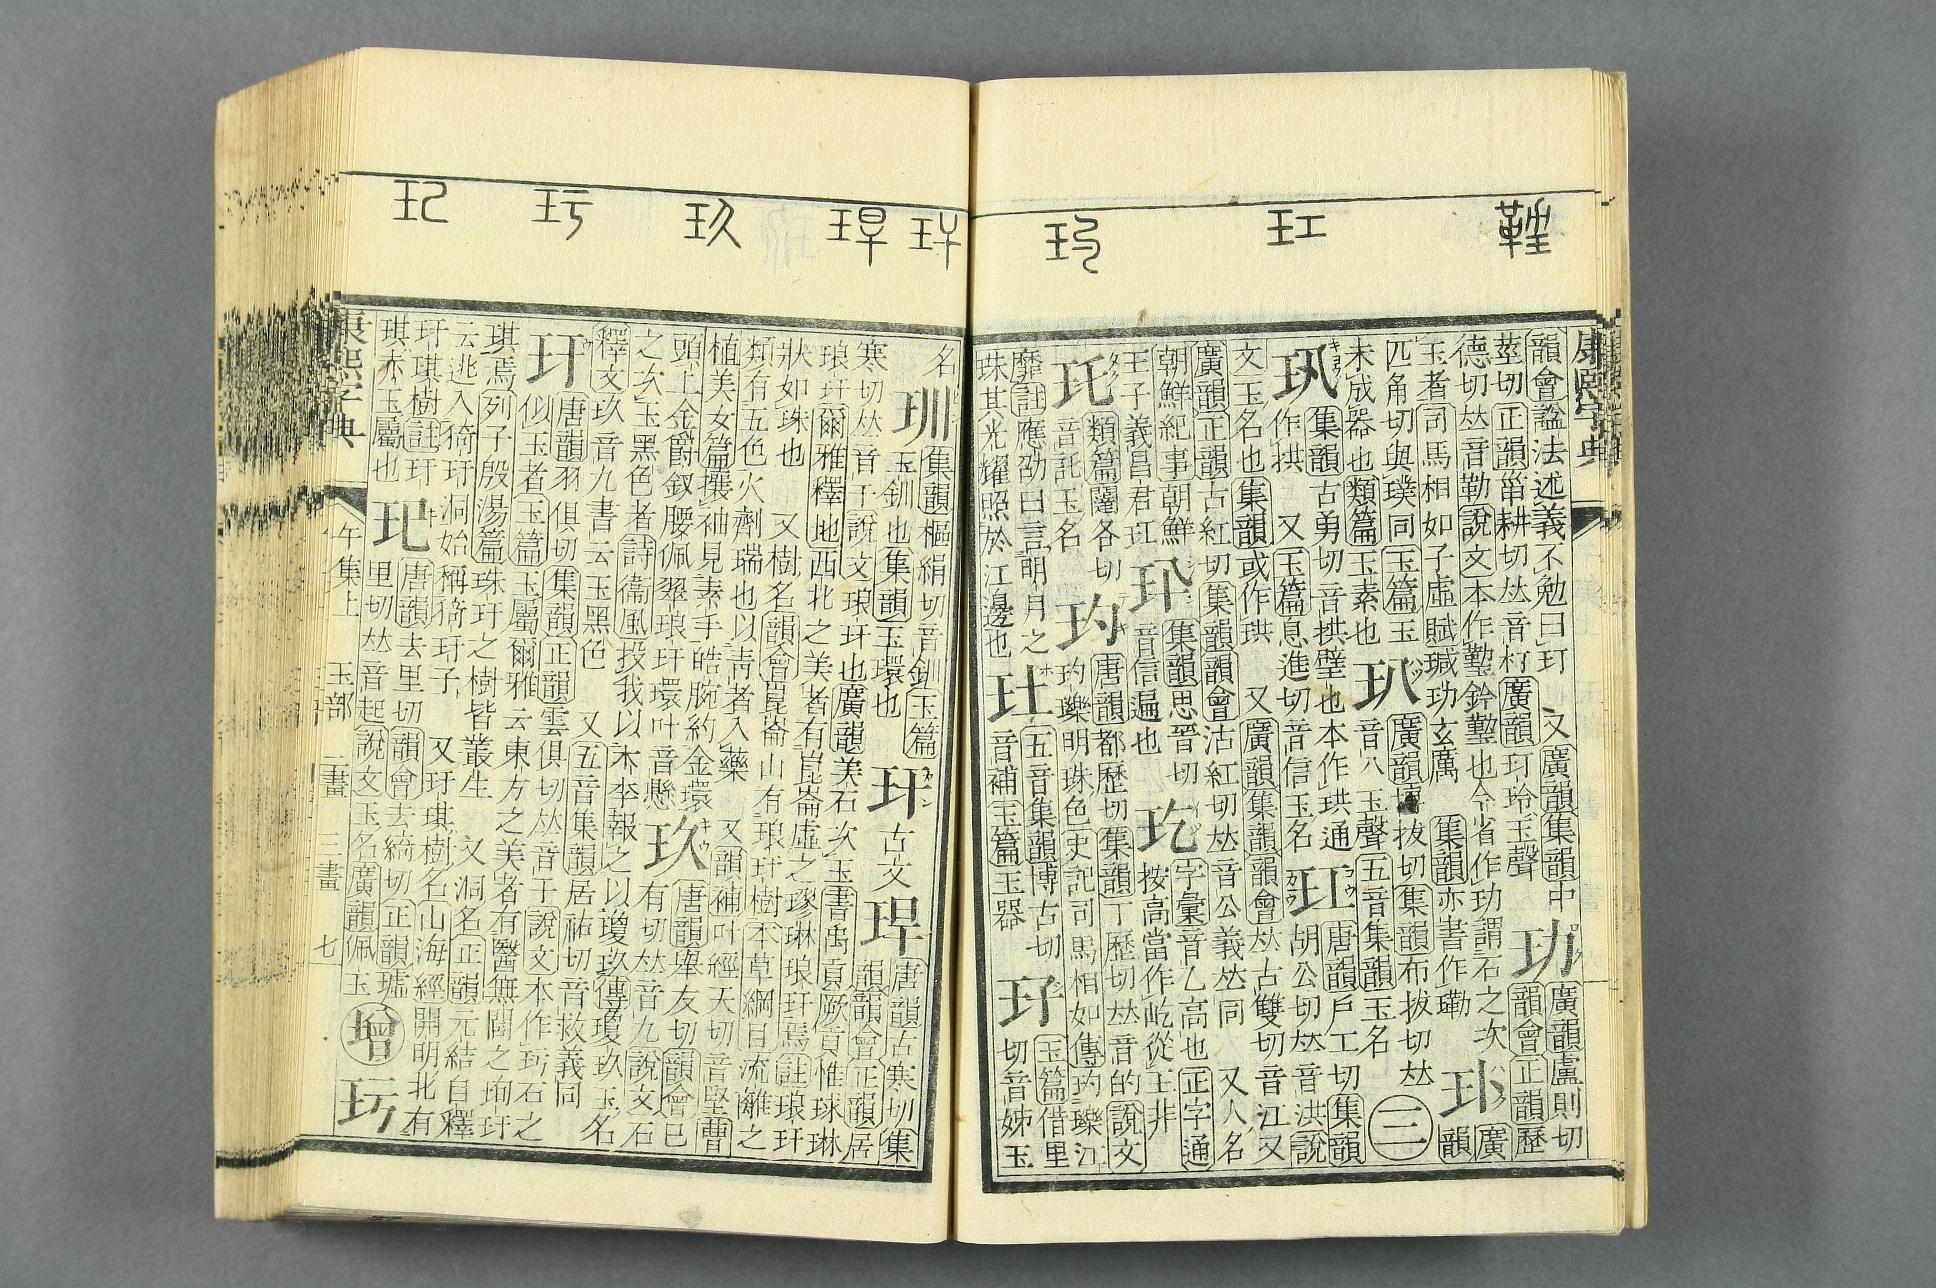 康熙字典
玒
玓
韻會諡法述義不勉曰玎 又廣韻集韻中
莖切正韻甾耕切𠀤音朾廣韻玎玲玉聲
玏
廣韻盧則切
韻會正韻歷
德切𠀤音勒說文本作
今省作玏謂石之次
玉者司馬相如子虛賦瑊玏玄厲 集韻亦書作
廣
韻
匹角切與璞同玉篇玉
未成器也類篇玉素也
玐
廣韻
拔切集韻布拔切𠀤
音八玉聲五音集韻玉名
三
集韻古勇切音拱璧也本作珙通
作拱 又玉篇息進切音信玉名
玒
唐韻戸工切集韻
胡公切𠀤音洪說
文玉名也集韻或作珙 又廣韻集韻韻會𠀤古雙切音江又
廣韻正韻古紅切集韻韻會沽紅切𠀤音公義𠀤同 又人名
朝鮮紀事朝鮮
王子義昌君玒
集韻思晉切
音信遍也
玘
字彙音乙高也正字通
按高當作屹從玉非
玼
類篇闥各切
音託玉名
玓
唐韻都歷切集韻丁歷切𠀤音的說文
玓瓅明珠色史記司馬相如傳玓瓅江
靡註應劭曰言明月之
珠其光耀照於江邊也
五音集韻博古切
音補玉篇玉器
玉篇借里
切音姊玉
名
玔
集韻樞絹切音釧玉篇
玉釧也集韻玉環也
玕
古文
𤥚
唐韻古寒切集
韻韻會正韻居
寒切𠀤音干說文琅玕也廣韻美石次玉書禹貢厥貢惟球琳
琅玕爾雅釋地西北之美者有崑崙虛之璆琳琅玕焉註琅玕
狀如珠也 又樹名韻會崑崙山有琅玕樹本草綱目流離之
類有五色火劑瑞也以靑者入藥 又韻補叶經天切音堅曹
植美女篇攘袖見素手皓腕約金環
頭上金爵釵腰佩翠琅玕環叶音懸
玖
唐韻舉友切韻會已
有切𠀤音九說文石
之次玉黑色者詩衞風投我以木李報之以瓊玖傳瓊玖玉名
釋文玖音九書云玉黑色 又五音集韻居祐切音救義同
玗
唐韻羽俱切集韻正韻雲俱切𠀤音于說文本作玗石之
似玉者玉篇玉屬爾雅云東方之美者有醫無閭之珣玗
琪焉列子殷湯篇珠玕之樹皆叢生 又洞名正韻元結自釋
云逃入猗玗洞始稱猗玗子 又玗琪樹名山海經開明北有
玗琪樹註玗
琪赤玉屬也
玘
唐韻去里切韻會去綺切正韻墟
里切𠀤音起說文玉名廣韻佩玉
增
康熙字典
午集上 玉部 二畫 三畫 七
玖